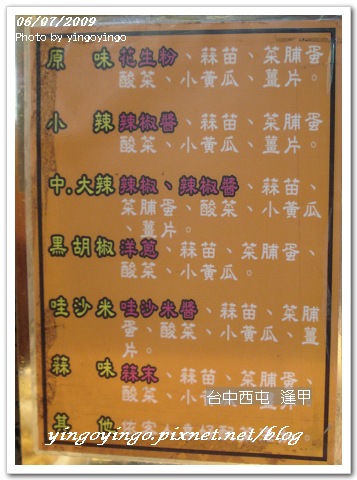 06/07/2009
Photo by yingoyingo
原味 花生粉、蒜苗、菜脯蛋
酸菜、小黃瓜、薑片。
小辣 辣椒醬、蒜苗、菜脯蛋
酸菜、小黃瓜、薑片。
中.大辣 辣椒、辣椒醬、蒜苗、
菜脯蛋、酸菜、小黃瓜
、薑片。
黑胡椒 洋蔥、蒜苗、菜脯蛋、
酸菜、小黃瓜。
哇沙米 哇沙米醬、蒜苗、菜脯
蛋、酸菜、小黃瓜、薑
片。
蒜味 蒜末、蒜苗、菜脯蛋、
酸菜、小黃瓜、薑片。
台中西屯 逢甲
其他
yingoyingo.pixnet.net/blog